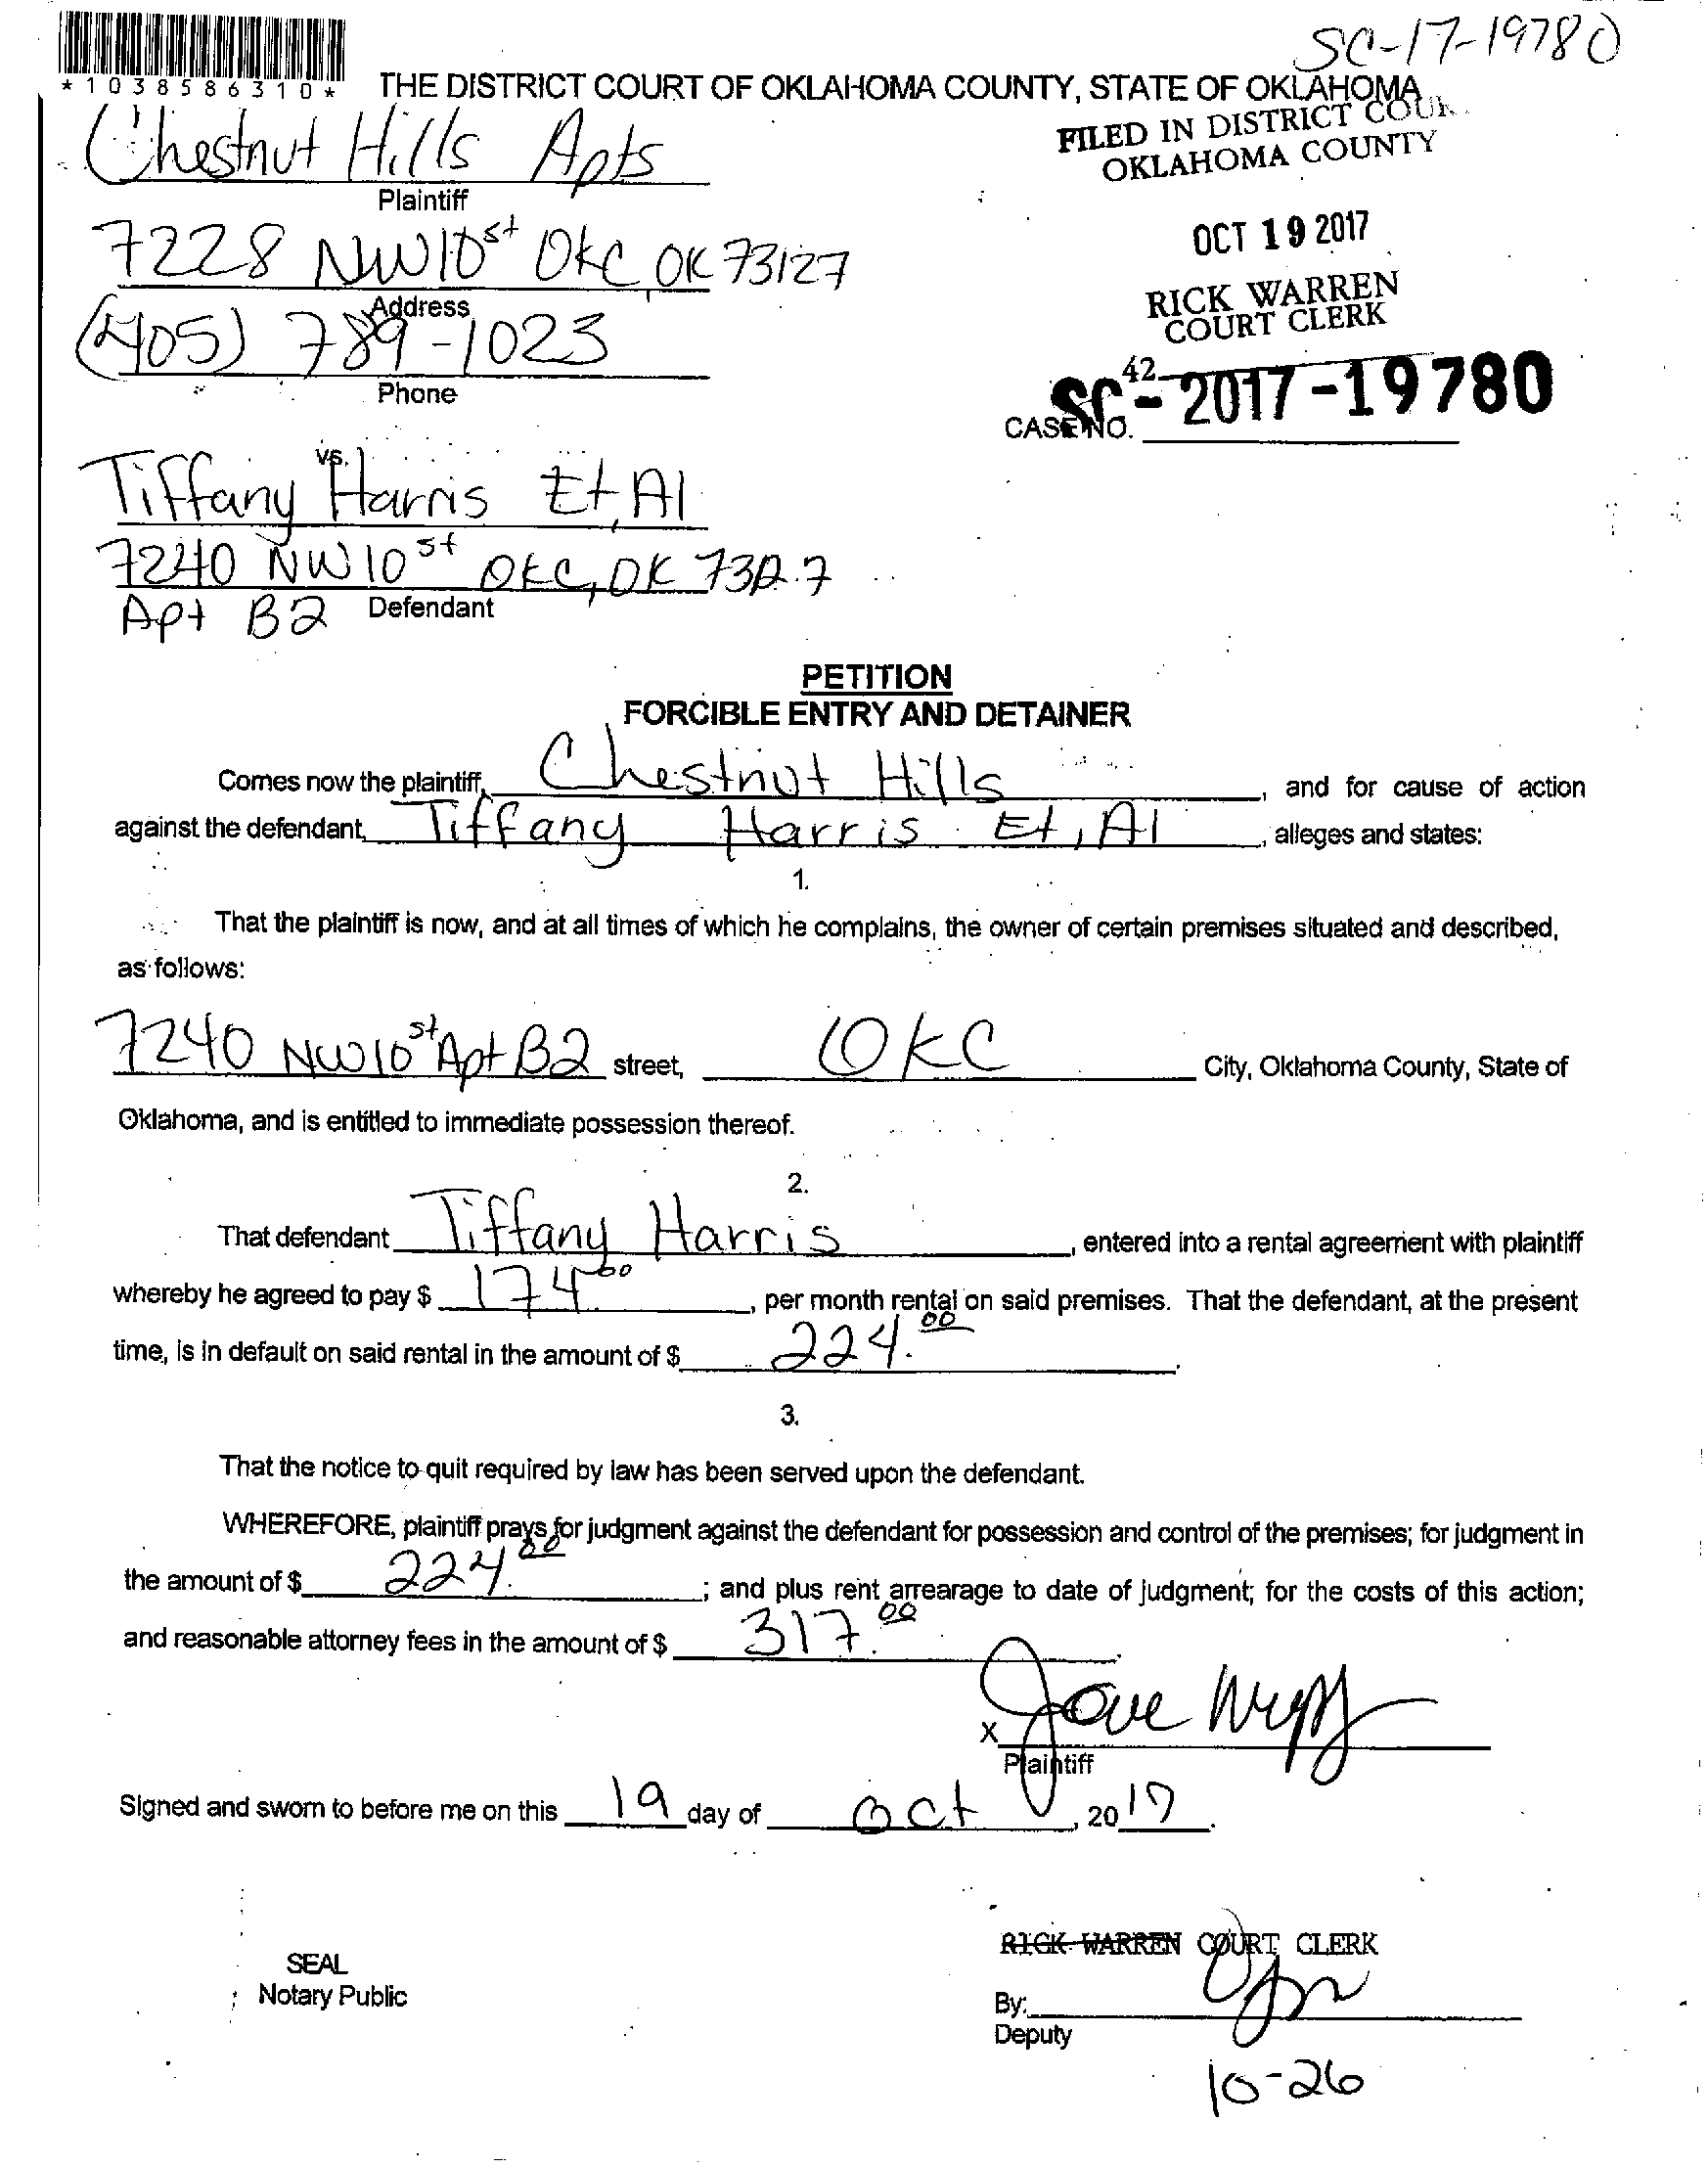 SC-17-19780
*1038586310*
THE DISTRICT COURT OF OKLAHOMA COUNTY, STATE OF OKLAHOMA
Chestnut Hills Apts
Plaintiff
FILED IN DISTRICT COUR
OKLAHOMA COUNTY
7228 NW 10st OKC OK 73127
Address
OCT 19 2017
(405) 789-1023
Phone
RICK WARREN
COURT CLERK
42
CASE NO. SC-2017-19780
vs.
Tiffany Harris Et, Al
7240 NW 10st OKC, OK
Apt B2 Defendant
PETITION
FORCIBLE ENTRY AND DETAINER
Comes now the plaintiff, Chestnut Hills, and for cause of action
against the defendant, Tiffany Harris Et, Al, alleges and states:
1.
That the plaintiff is now, and at all times of which he complains, the owner of certain premises situated and described,
as follows:
7240 NW 10st Apt B2 street, OKC City, Oklahoma County, State of
Oklahoma, and is entitled to immediate possession thereof.
2.
That defendant Tiffany Harris, entered into a rental agreement with plaintiff
whereby he agreed to pay $ 174.00, per month rental on said premises. That the defendant, at the present
time, is in default on said rental in the amount of $ 224.00.
3.
That the notice to quit required by law has been served upon the defendant.
WHEREFORE, plaintiff prays for judgment against the defendant for possession and control of the premises; for judgment in
the amount of $ 224.00; and plus rent arrearage to date of judgment; for the costs of this action;
and reasonable attorney fees in the amount of $ 317.00.
X
Plaintiff
Signed and sworn to before me on this 19 day of Oct, 2017.
RICK WARREN COURT CLERK
SEAL
Notary Public
By:
Deputy
10-26